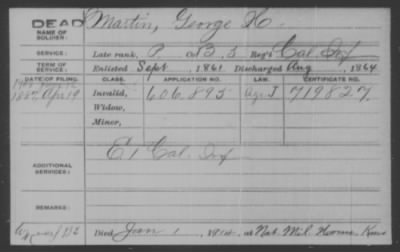 DEAD
NAME OF SOLDIER:
Martin, George H.
SERVICE:
Late rank, P Co. B, 5 Reg't Cal. Inf
TERM OF SERVICE:
Enlisted Sept , 1861 Discharged Aug , 1864
DATE OF FILING. CLASS. APPLICATION NO. LAW. CERTIFICATE NO.
1887, Apr 19 Invalid, 606,895 J 719827
Widow,
Minor,
ADDITIONAL SERVICES:
E 1 Cal. Inf
REMARKS:
Died Jan 1, 1914, at Nat. Mil. Home, Kans